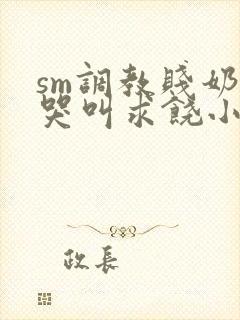 sm調教賤奶
哭叫求饒小
政長